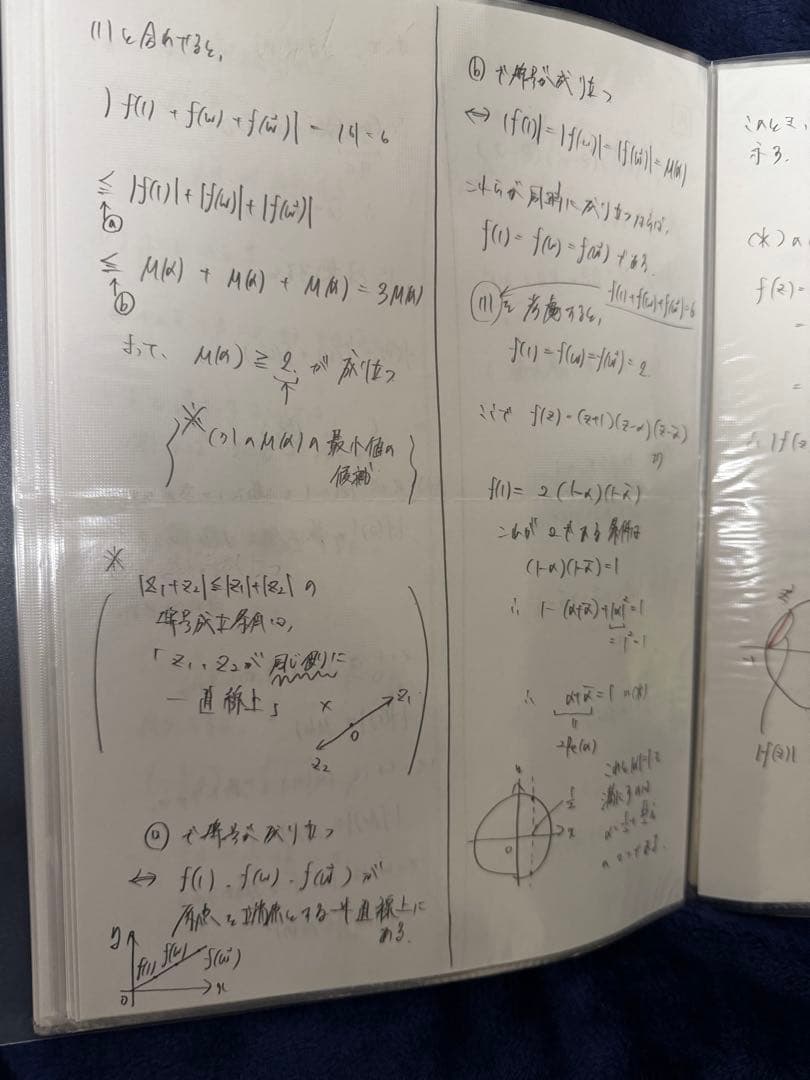 (1)と合わせると、
|f(1) + f(ω) + f(ω²)| = |6| = 6
≦ |f(1)| + |f(ω)| + |f(ω²)|
ⓐ
≦ M(α) + M(α) + M(α) = 3M(α)
ⓑ
よって、M(α) ≧ 2 が成り立つ
※(3)のM(α)の最小値の
候補
※
|z₁+z₂| ≦ |z₁|+|z₂| の
等号成立条件は、
「z₁, z₂が同じ側に
一直線上」
× z₁
O
z₂
ⓐで等号が成り立つ
⇔ f(1), f(ω), f(ω²)が
原点を端点とする半直線上に
ある.
y
f(1) f(ω) f(ω²)
O x
ⓑで等号が成り立つ
⇔ |f(1)| = |f(ω)| = |f(ω²)| = M(α)
これらが同時に成り立つならば,
f(1) = f(ω) = f(ω²)である.
f(1)+f(ω)+f(ω²)=6
(1)を考慮すると,
f(1) = f(ω) = f(ω²) = 2
ここで f(z) = (z+1)(z-α)(z-ᾱ)
より
f(1) = 2(1-α)(1-ᾱ)
これが2である条件は
(1-α)(1-ᾱ) = 1
∴ 1-(α+ᾱ)+|α|² = 1
= 1² = 1
∴ α+ᾱ = 1 …(*)
2Re(α)
y
1/2
O x
これと|α|=1を
満たすαは
このとき、
示す.
(*)の
f(z) =
=
=
|f(z)|